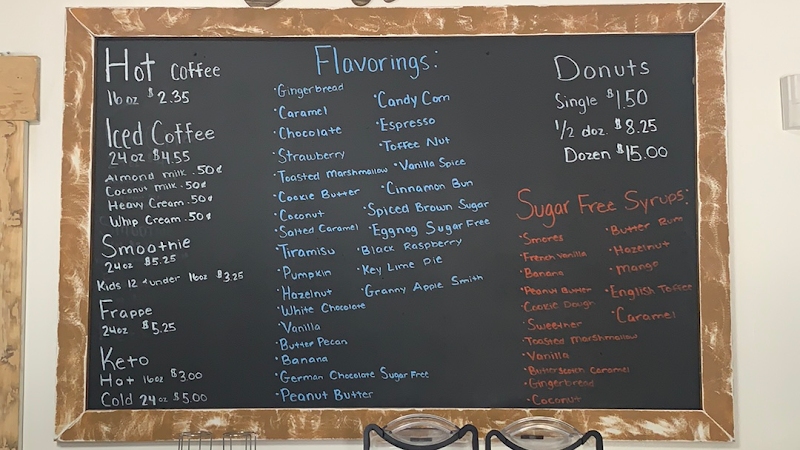 Hot Coffee
16oz $2.35
Iced Coffee
24oz $4.55
Almond milk .50¢
Coconut milk .50¢
Heavy Cream .50¢
Whip Cream .50¢
Smoothie
24oz $5.25
Kids 12 & under 16oz $3.25
Frappe
24oz $5.25
Keto
Hot 16oz $3.00
Cold 24oz $5.00
Flavorings:
·Gingerbread
·Caramel
·Chocolate
·Strawberry
·Toasted Marshmallow
·Cookie Butter
·Coconut
·Salted Caramel
·Tiramisu
·Pumpkin
·Hazelnut
·White Chocolate
·Vanilla
·Butter Pecan
·Banana
·German Chocolate Sugar Free
·Peanut Butter
·Candy Corn
·Espresso
·Toffee Nut
·Vanilla Spice
·Cinnamon Bun
·Spiced Brown Sugar
·Eggnog Sugar Free
·Black Raspberry
·Key Lime Pie
·Granny Apple Smith
Donuts
Single $1.50
1/2 doz. $8.25
Dozen $15.00
Sugar Free Syrups:
·Smores
·French Vanilla
·Banana
·Peanut Butter
·Cookie Dough
·Sweetner
·Toasted Marshmallow
·Vanilla
·Butterscotch Caramel
·Gingerbread
·Coconut
·Butter Rum
·Hazelnut
·Mango
·English Toffee
·Caramel